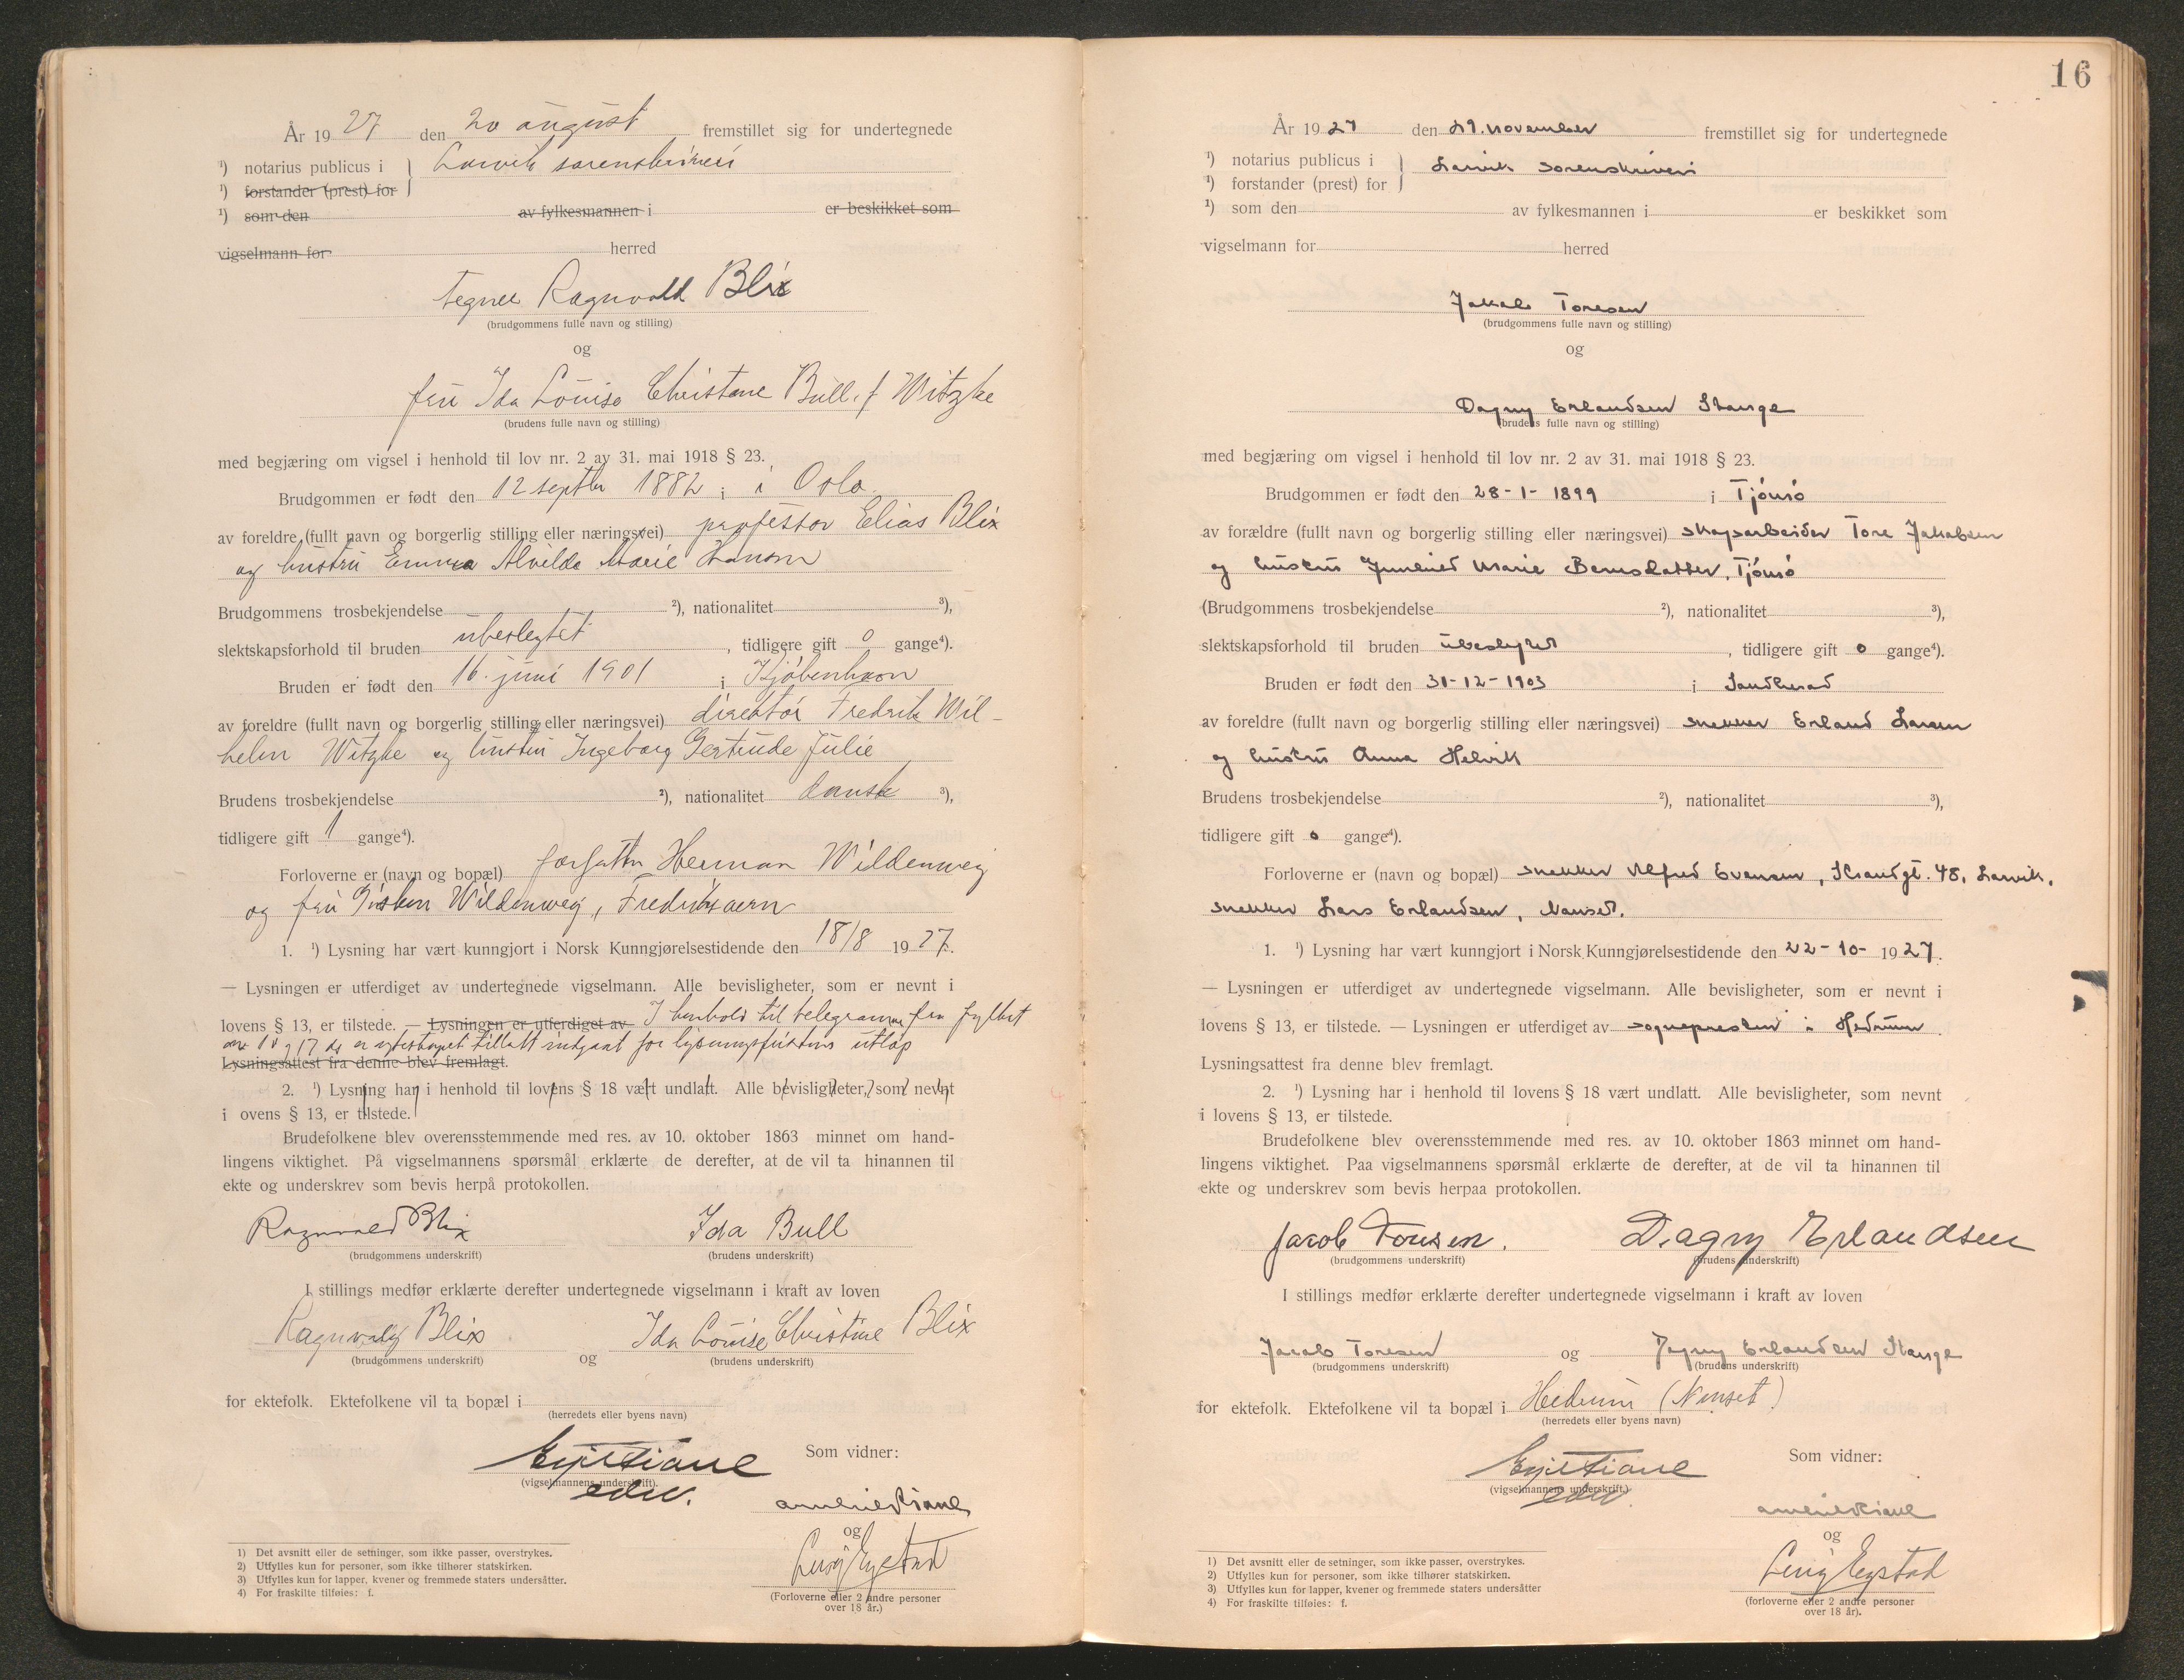 År 1927 den 20 august fremstillet sig for undertegnede
¹) notarius publicus i } Larvik sorenskriveri
¹) forstander (prest) for
¹) som den av fylkesmannen i er beskikket som
vigselmann for herred
tegner Ragnvald Blix
(brudgommens fulle navn og stilling)
og
fru Ida Louise Christine Bull, f Witzke
(brudens fulle navn og stilling)
med begjæring om vigsel i henhold til lov nr. 2 av 31. mai 1918 § 23.
Brudgommen er født den 12 septbr 1882 i Oslo
av foreldre (fullt navn og borgerlig stilling eller næringsvei) professor Elias Blix
og hustru Emma Alvilde Marie Hanson
Brudgommens trosbekjendelse ²), nationalitet ³),
slektskapsforhold til bruden ubeslegtet, tidligere gift 0 gange⁴).
Bruden er født den 16. juni 1901 i Kjøbenhavn
av foreldre (fullt navn og borgerlig stilling eller næringsvei) direktør Fredrik Wil-
helm Witzke og hustru Ingeborg Gertrude Julie
Brudens trosbekjendelse ²), nationalitet dansk ³),
tidligere gift 1 gange⁴).
Forloverne er (navn og bopæl) forfatter Herman Wildenwey
og fru Gisken Wildenwey, Fredriksvern
1. ¹) Lysning har vært kunngjort i Norsk Kunngjørelsestidende den 18/8 1927.
— Lysningen er utferdiget av undertegnede vigselmann. Alle bevisligheter, som er nevnt i
lovens § 13, er tilstede. — Lysningen er utferdiget av I henhold til telegram fra fylket
av 17 ds er egteskapet tillatt indgaat før lysningsfristens utløp
Lysningsattest fra denne blev fremlagt.
2. ¹) Lysning har i henhold til lovens § 18 vært undlatt. Alle bevisligheter, som nevnt
i ovens § 13, er tilstede.
Brudefolkene blev overensstemmende med res. av 10. oktober 1863 minnet om hand-
lingens viktighet. På vigselmannens spørsmål erklærte de derefter, at de vil ta hinannen til
ekte og underskrev som bevis herpå protokollen.
Ragnvald Blix Ida Bull
(brudgommens underskrift) (brudens underskrift)
I stillings medfør erklærte derefter undertegnede vigselmann i kraft av loven
Ragnvald Blix og Ida Louise Christine Blix
(brudgommens underskrift) (brudens underskrift)
for ektefolk. Ektefolkene vil ta bopæl i
(herredets eller byens navn)
Som vidner:
(vigselmannens underskrift).
og
(Forloverne eller 2 andre personer
over 18 år.)
1) Det avsnitt eller de setninger, som ikke passer, overstrykes.
2) Utfylles kun for personer, som ikke tilhører statskirken.
3) Utfylles kun for lapper, kvener og fremmede staters undersåtter.
4) For fraskilte tilføies: f.
16
År 1927 den 29. november fremstillet sig for undertegnede
¹) notarius publicus i } Larvik sorenskriveri
¹) forstander (prest) for
¹) som den av fylkesmannen i er beskikket som
vigselmann for herred
Jakob Toresen
(brudgommens fulle navn og stilling)
og
Dagny Erlandsen Stange
(brudens fulle navn og stilling)
med begjæring om vigsel i henhold til lov nr. 2 av 31. mai 1918 § 23.
Brudgommen er født den 28-1-1899 i Tjømø
av forældre (fullt navn og borgerlig stilling eller næringsvei) skogsarbeider Tore Jakobsen
og hustru Marie Tjømø
(Brudgommens trosbekjendelse ²), nationalitet ³),
slektskapsforhold til bruden ubeslegtet, tidligere gift 0 gange⁴).
Bruden er født den 31-12-1903 i Sandherad
av foreldre (fullt navn og borgerlig stilling eller næringsvei) snekker Erland Larsen
og hustru Anna Helvik
Brudens trosbekjendelse ²), nationalitet ³),
tidligere gift 0 gange⁴).
Forloverne er (navn og bopæl) snekker Alfred Evensen, Strandgt. 48, Larvik,
snekker Lars Erlandsen, Nanset.
1. ¹) Lysning har vært kunngjort i Norsk Kunngjørelsestidende den 22-10-1927.
— Lysningen er utferdiget av undertegnede vigselmann. Alle bevisligheter, som er nevnt i
lovens § 13, er tilstede. — Lysningen er utferdiget av sognepresten i Hedrum.
Lysningsattest fra denne blev fremlagt.
2. ¹) Lysning har i henhold til lovens § 18 vært undlatt. Alle bevisligheter, som nevnt
i lovens § 13, er tilstede.
Brudefolkene blev overensstemmende med res. av 10. oktober 1863 minnet om hand-
lingens viktighet. Paa vigselmannens spørsmål erklærte de derefter, at de vil ta hinannen til
ekte og underskrev som bevis herpaa protokollen.
Jacob Toresen. Dagny Erlandsen
(brudgommens underskrift) (brudens underskrift)
I stillings medfør erklærte derefter undertegnede vigselmann i kraft av loven
Jacob Toresen og Dagny Erlandsen Stange
(brudgommens underskrift) (brudens underskrift)
for ektefolk. Ektefolkene vil ta bopæl i Hedrum (Nanset)
(herredets eller byens navn)
Som vidner:
(vigselmannens underskrift.)
og
(forloverne eller 2 andre personer
over 18 år).
1) Det avsnitt eller de setninger, som ikke passer, overstrykes.
2) Utfylles kun for personer, som ikke tilhører statskirken.
3) Utfylles kun for lapper, kvener og fremmede staters undersåtter
4) For fraskilte tilføies: f.